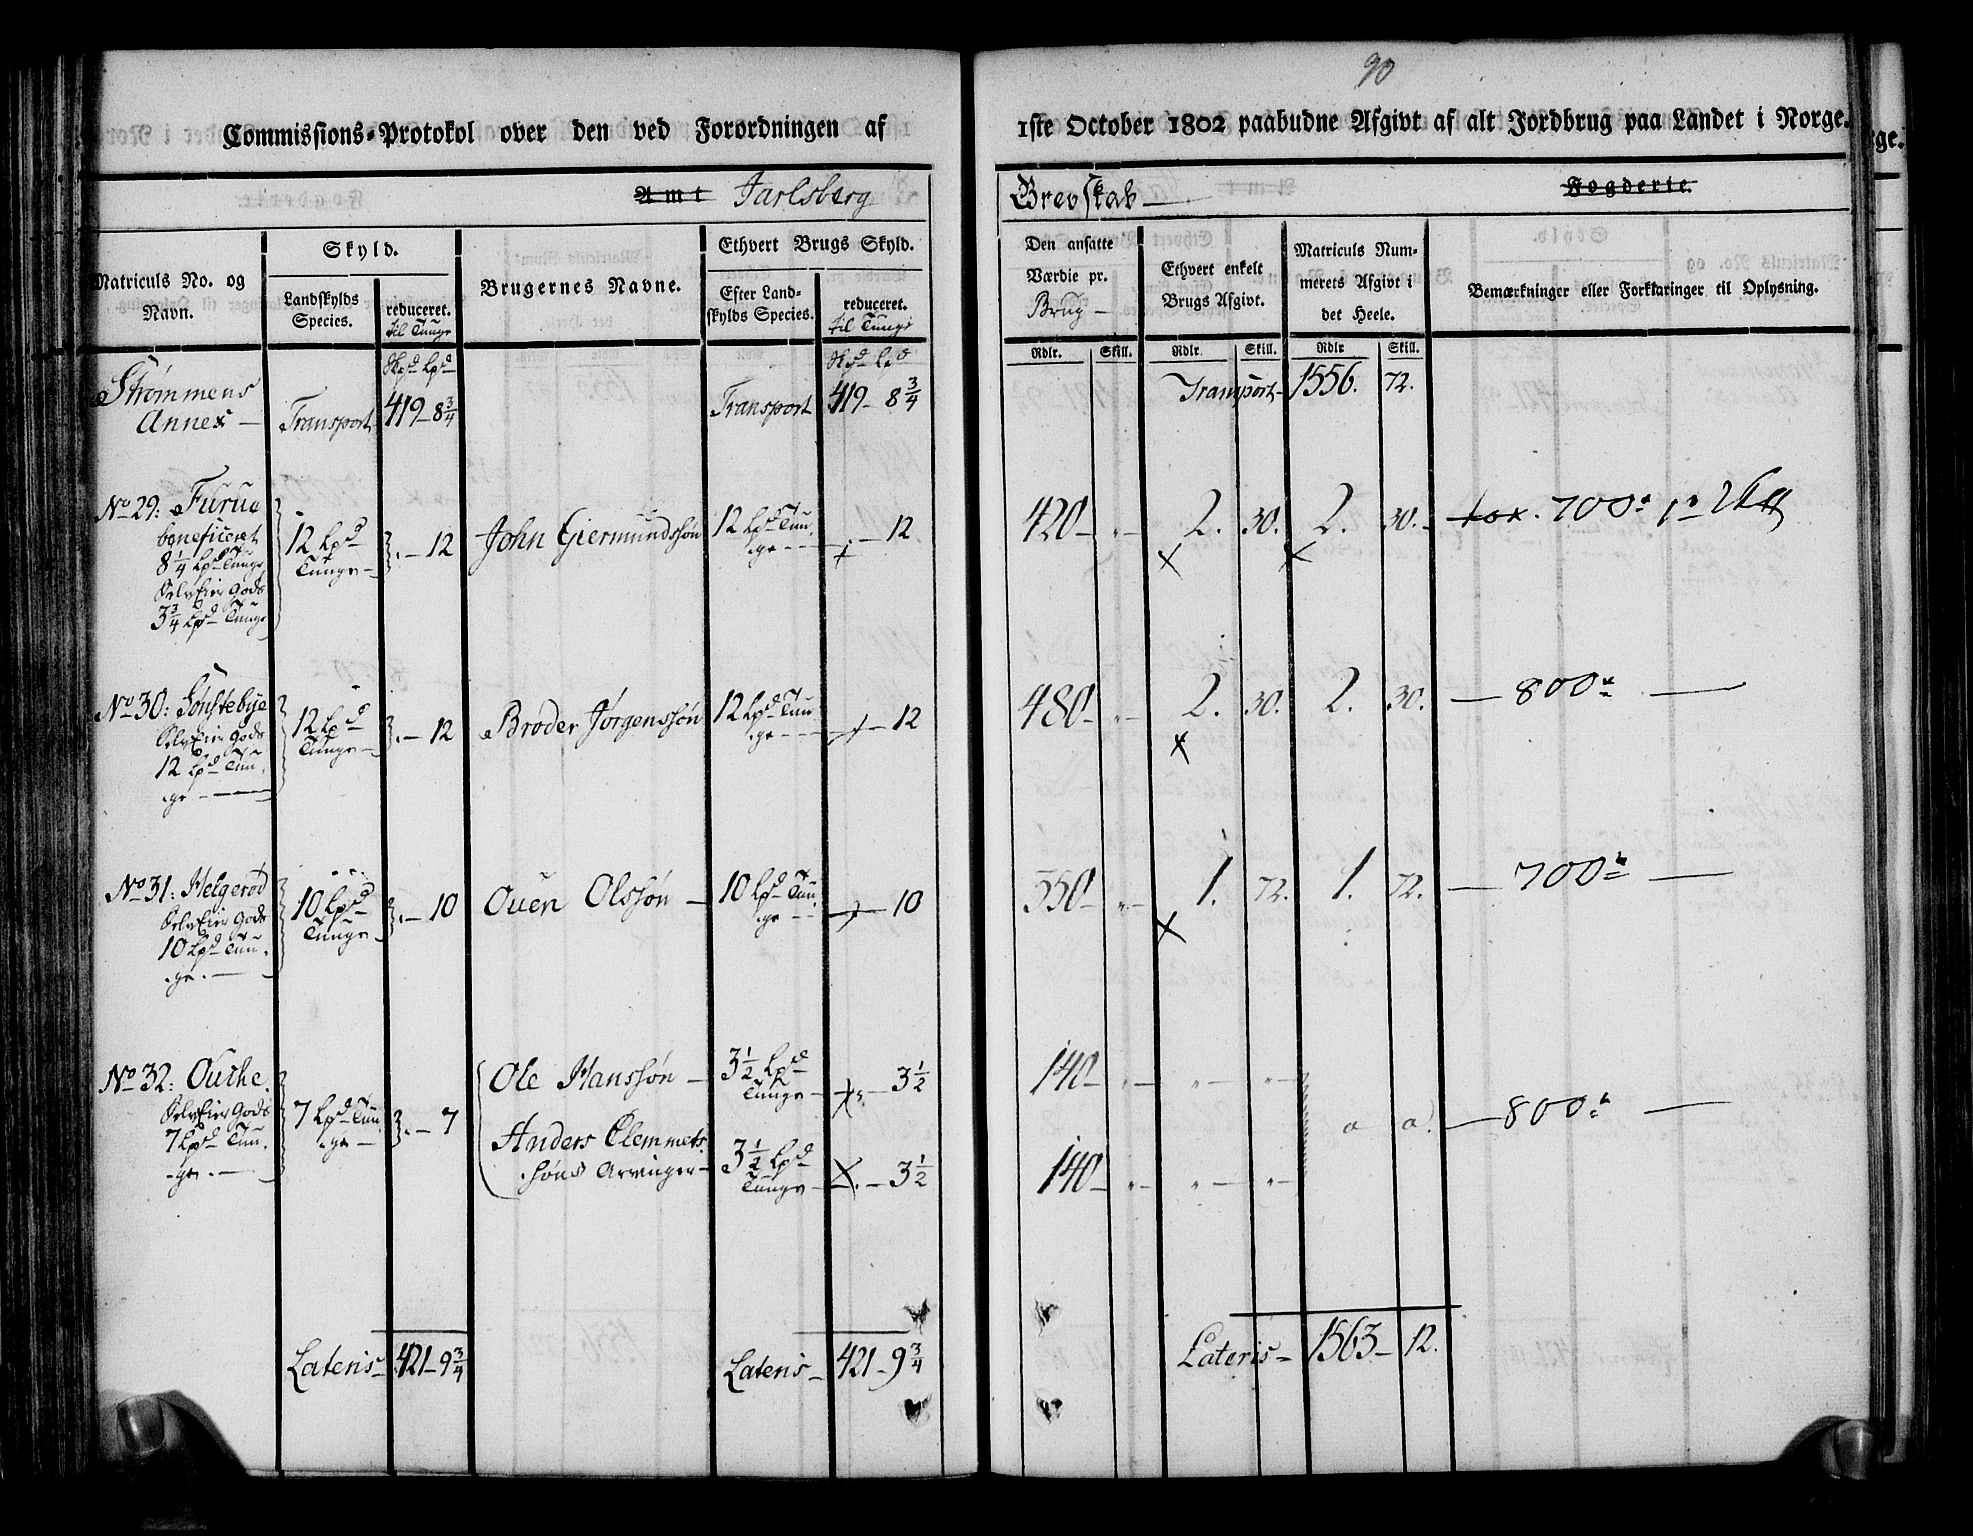 90
Commissions-Protokol over den ved Forordningen af
1ste October 1802 paabudne Afgivt af alt Jordbrug paa Landet i Norge.
Amt Jarlsberg
Grevskab —
Fogderie.
Matriculs No. og
Navn.
Skyld.
Landskylds
Species.
reduceret.
til Tunge
Brugernes Navne.
Ethvert Brugs Skyld.
Efter Land-
skylds Species.
reduceret.
til Tunge
Den ansatte
Værdie pr.
Brug —
Ethvert enkelt
Brugs Afgivt.
Matriculs Num-
merets Afgivt i
det Heele.
Bemærkninger eller Forklaringer til Oplysning.
Rdlr. Skill. Rdlr. Skill. Rdlr. Skill.
Strømmens
Annex —
Transport
419 — 8 3/4
Transport
419 — 8 3/4
Transport — 1556. 72.
No 29: Furue
beneficeret
8 1/4 Lpd Tunge
SelvEier Gods
3 3/4 Lpd Tunge
12 Lpd
Tunge —
. — 12
John Giermundssøn
12 Lpd Tun-
ge — —
. — 12
420 — „ —
2. 30.
2. 30. —
700
No 30: Sønstebye
SelvEier Gods
12 Lpd Tun-
ge — —
12 Lpd
Tunge —
. — 12
Broder Jørgenssøn
12 Lpd Tun-
ge — —
— 12
480 — „ —
2. 30.
2. 30.
— 800 —
No 31: Helgerød
SelvEier Gods
10 Lpd Tun-
ge. —
10 Lpd
Tunge —
. — 10
Ouen Olssøn —
10 Lpd Tun-
ge — —
— 10
350 — „ —
1. 72.
1. 72.
— 700 —
No 32: Outhe.
SelvEier Gods
7 Lpd Tun-
ge. —
7 Lpd Tun-
ge —
. — 7
Ole Hanssøn —
3 1/2 Lpd
Tunge —
— 3 1/2
140 — „ — „ — „ —
Anders Clemmets-
søns Arvinger —
3 1/2 Lpd
Tunge —
. — 3 1/2
140 — „ — „ — „ —
— 800 —
Lateris — 421 — 9 3/4
Lateris — 421 — 9 3/4
Lateris — 1563 — 12.